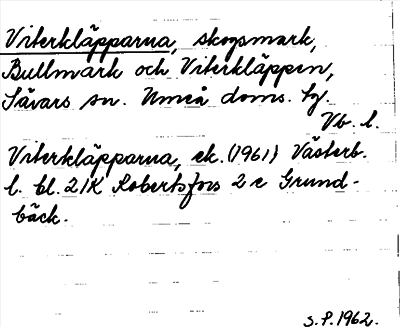 Viterkläpparna, skogsmark,
Bullmark och Viterkläppen,
Sävars sn. Umeå doms. tg.
Vb. l.
Viterkläpparna, ek. (1961) Västerb.
l. bl. 21K Robertsfors 2 c Grund-
bäck.
S.P. 1962.